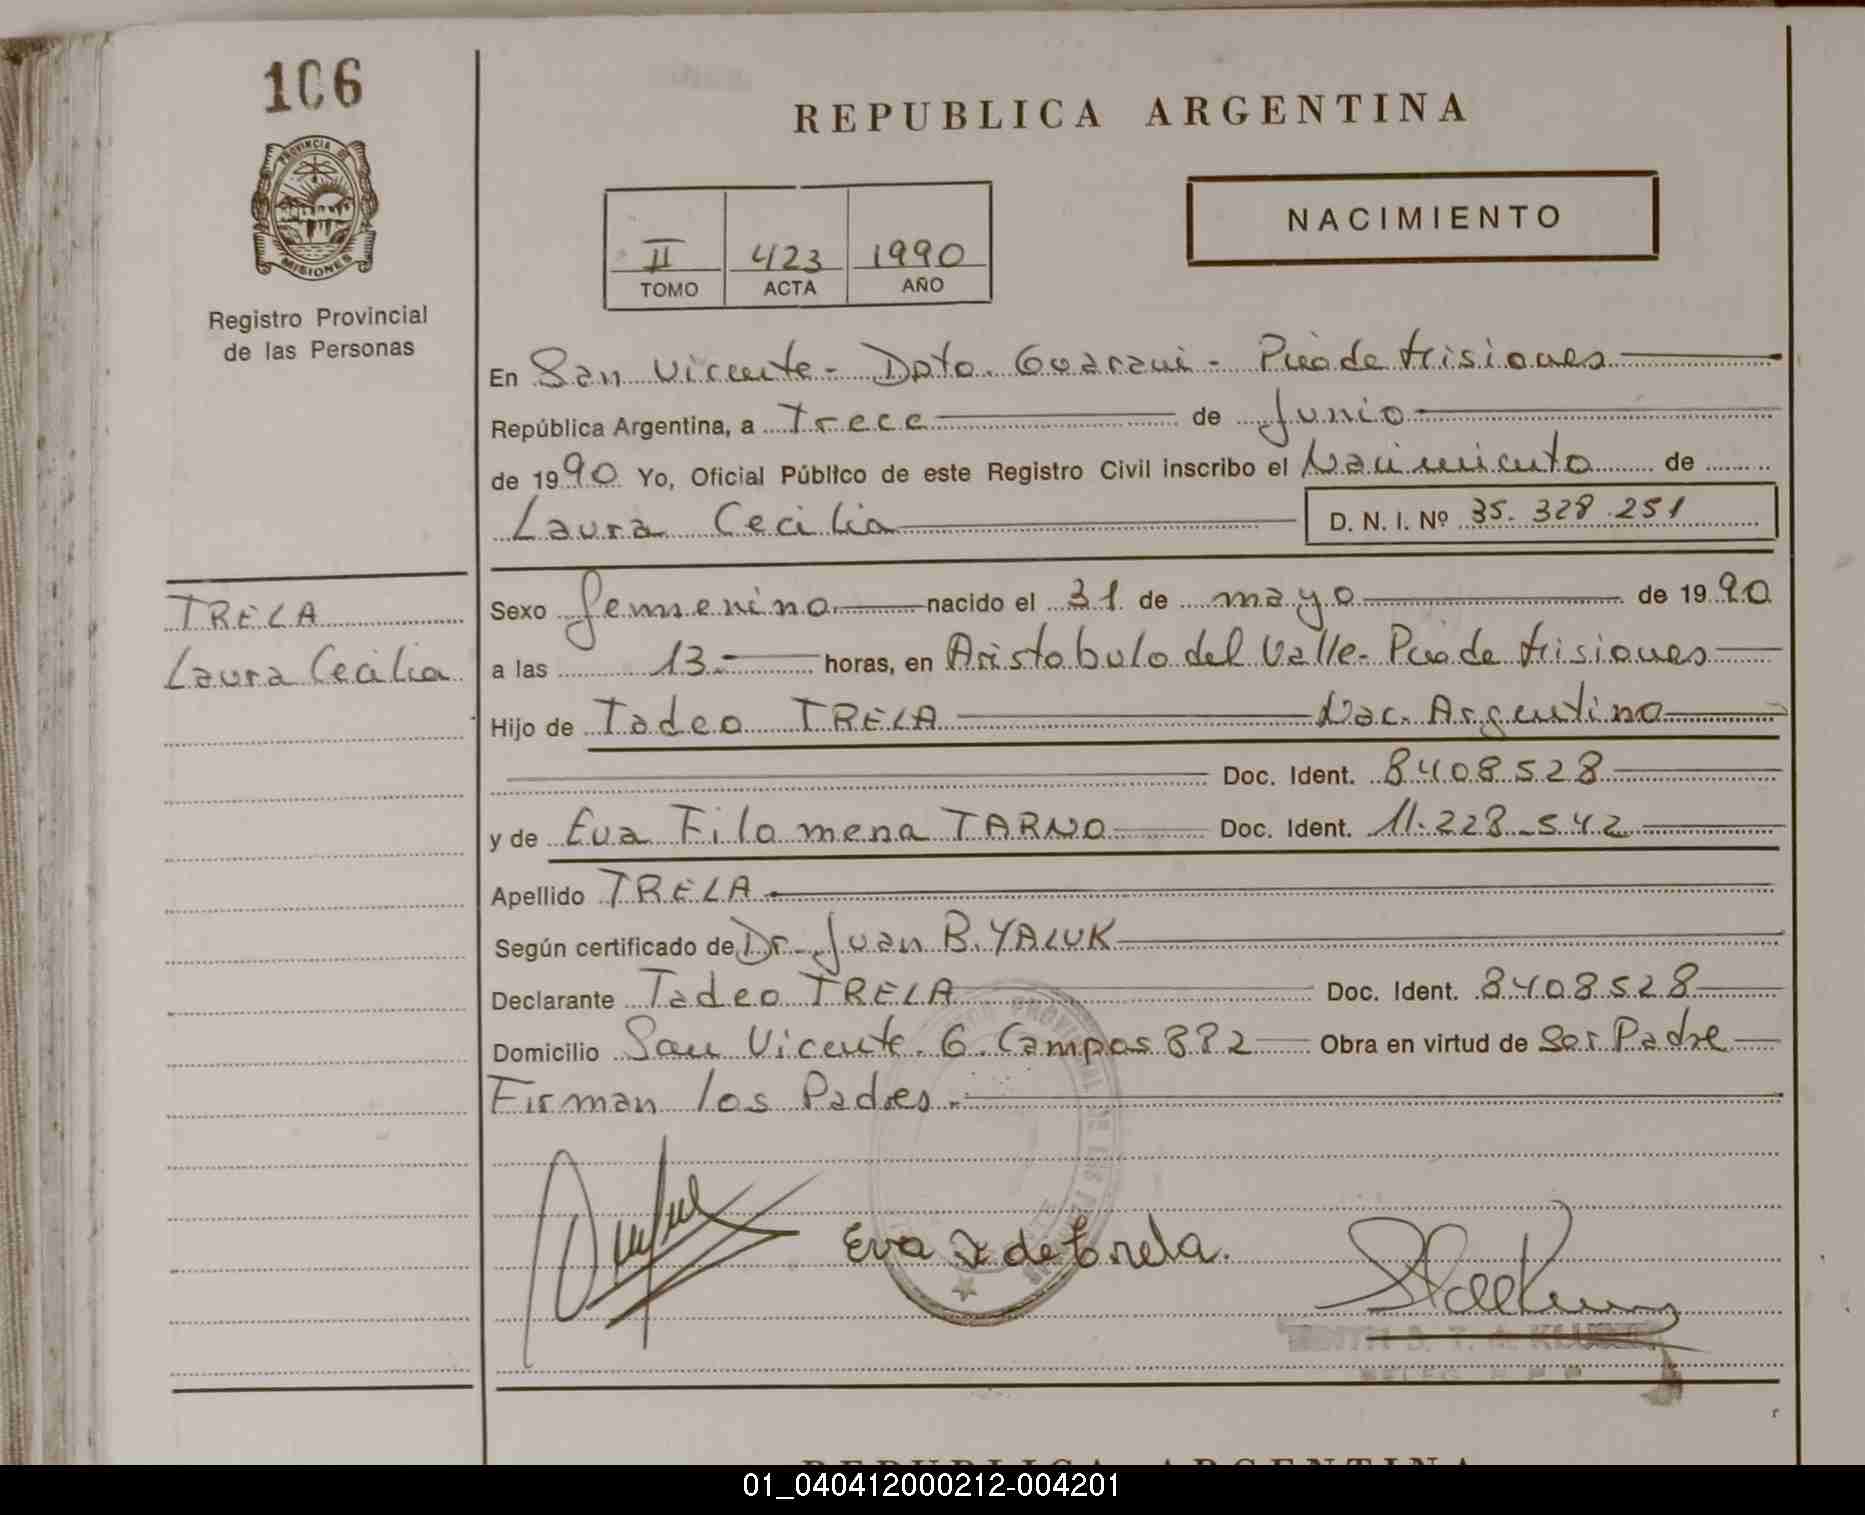 106
PROVINCIA DE
MISIONES
Registro Provincial
de las Personas
REPUBLICA ARGENTINA
NACIMIENTO
II 423 1990
TOMO ACTA AÑO
En San Vicente - Dpto. Guarani - Pcia de Misiones
República Argentina, a Trece de Junio
de 1990 Yo, Oficial Público de este Registro Civil inscribo el Nacimiento de
Laura Cecilia D. N. I. Nº 35.328.251
TRELA
Laura Cecilia
Sexo femenino nacido el 31 de mayo de 1990
a las 13.- horas, en Aristobulo del Valle - Pcia de Misiones
Hijo de Tadeo TRELA Nac. Argentino
Doc. Ident. 8408528
y de Eva Filomena TARNO Doc. Ident. 11.228.542
Apellido TRELA
Según certificado de Dr. Juan B. YALUK
Declarante Tadeo TRELA Doc. Ident. 8408528
Domicilio San Vicente. G. Campos 882 Obra en virtud de Ser Padre
Firman los Padres.-
Eva de trela.
REPUBLICA ARGENTINA
01_040412000212-004201